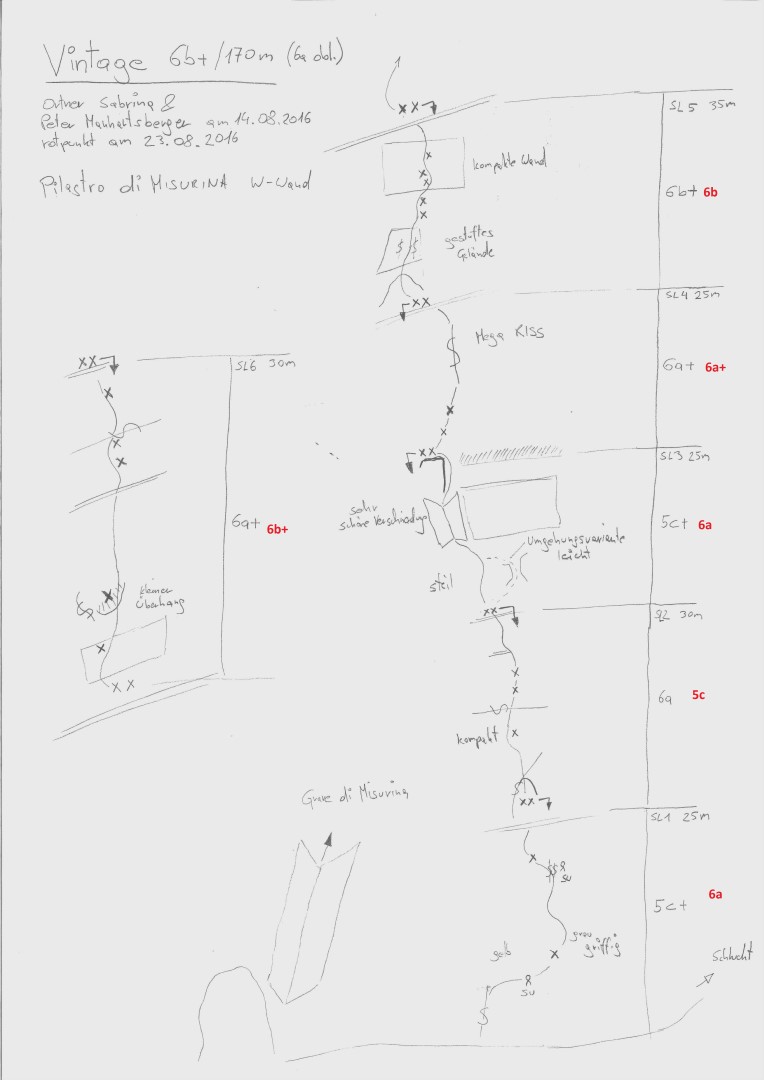 Vintage 6b+/170m (6a obl.)
Ortner Sabrina &
Peter Manhartsberger am 14.08.2016
rotpunkt am 23.08.2016
Pilastro di MISURINA W-Wand
SL5 35m
kompakte Wand
6b+ 6b
gestuftes
Gelände
SL4 25m
Mega KISS
6a+ 6a+
SL6 30m
SL3 25m
sehr
schöne Verschneidung
5c+ 6a
6a+ 6b+
Umgehungsvariante
leicht
steil
kleiner
Überhang
SL2 30m
6a 5c
kompakt
Guove di Misurina
SL1 25m
SU
5c+ 6a
grau
griffig
gelb
SU
Schlucht